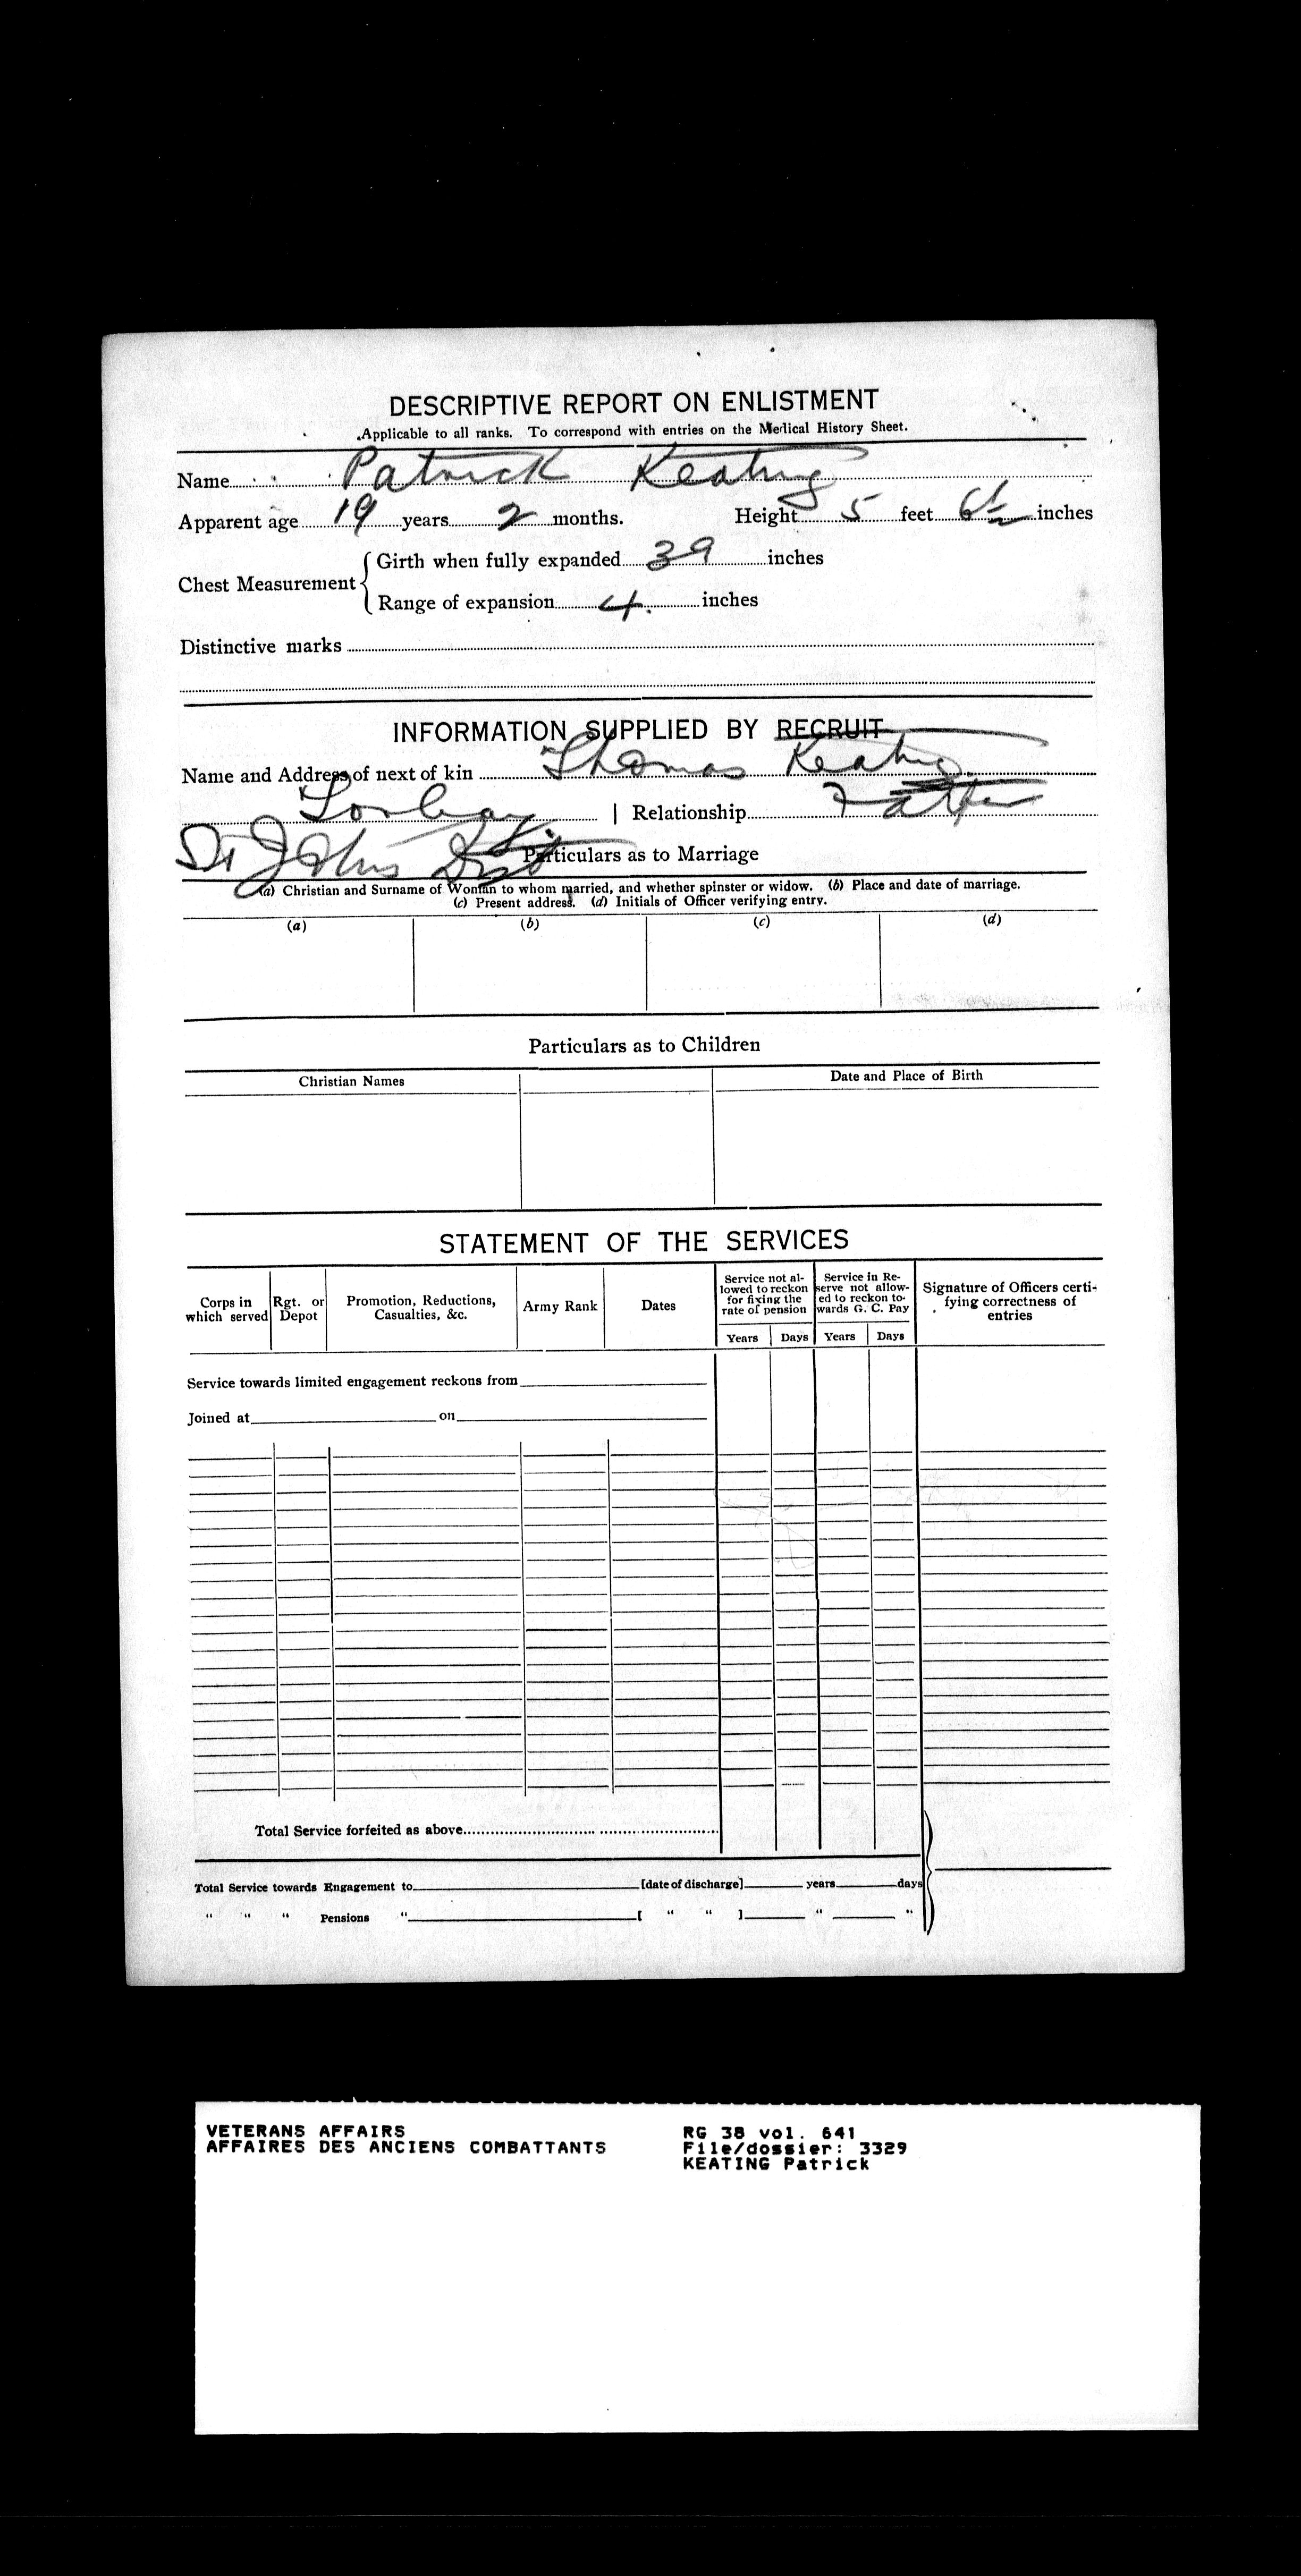 DESCRIPTIVE REPORT ON ENLISTMENT
Applicable to all ranks. To correspond with entries on the Medical History Sheet.
Name Patrick Keating
Apparent age 19 years 2 months. Height 5 feet 6½ inches
Chest Measurement { Girth when fully expanded 39 inches
Range of expansion 4. inches
Distinctive marks
INFORMATION SUPPLIED BY RECRUIT
Name and Address of next of kin Thomas Keating
Torbay | Relationship Father
St Johns Dist
Particulars as to Marriage
(a) Christian and Surname of Woman to whom married, and whether spinster or widow. (b) Place and date of marriage.
(c) Present address. (d) Initials of Officer verifying entry.
(a) (b) (c) (d)
Particulars as to Children
Christian Names Date and Place of Birth
STATEMENT OF THE SERVICES
Corps in which served Rgt. or Depot Promotion, Reductions, Casualties, &c. Army Rank Dates Service not allowed to reckon for fixing the rate of pension Service in Reserve not allowed to reckon towards G. C. Pay Signature of Officers certifying correctness of entries
Years Days Years Days
Service towards limited engagement reckons from
Joined at on
Total Service forfeited as above
Total Service towards Engagement to [date of discharge] years days
" " " Pensions " [ " " ] " "
VETERANS AFFAIRS RG 38 vol. 641
AFFAIRES DES ANCIENS COMBATTANTS File/dossier: 3329
KEATING Patrick